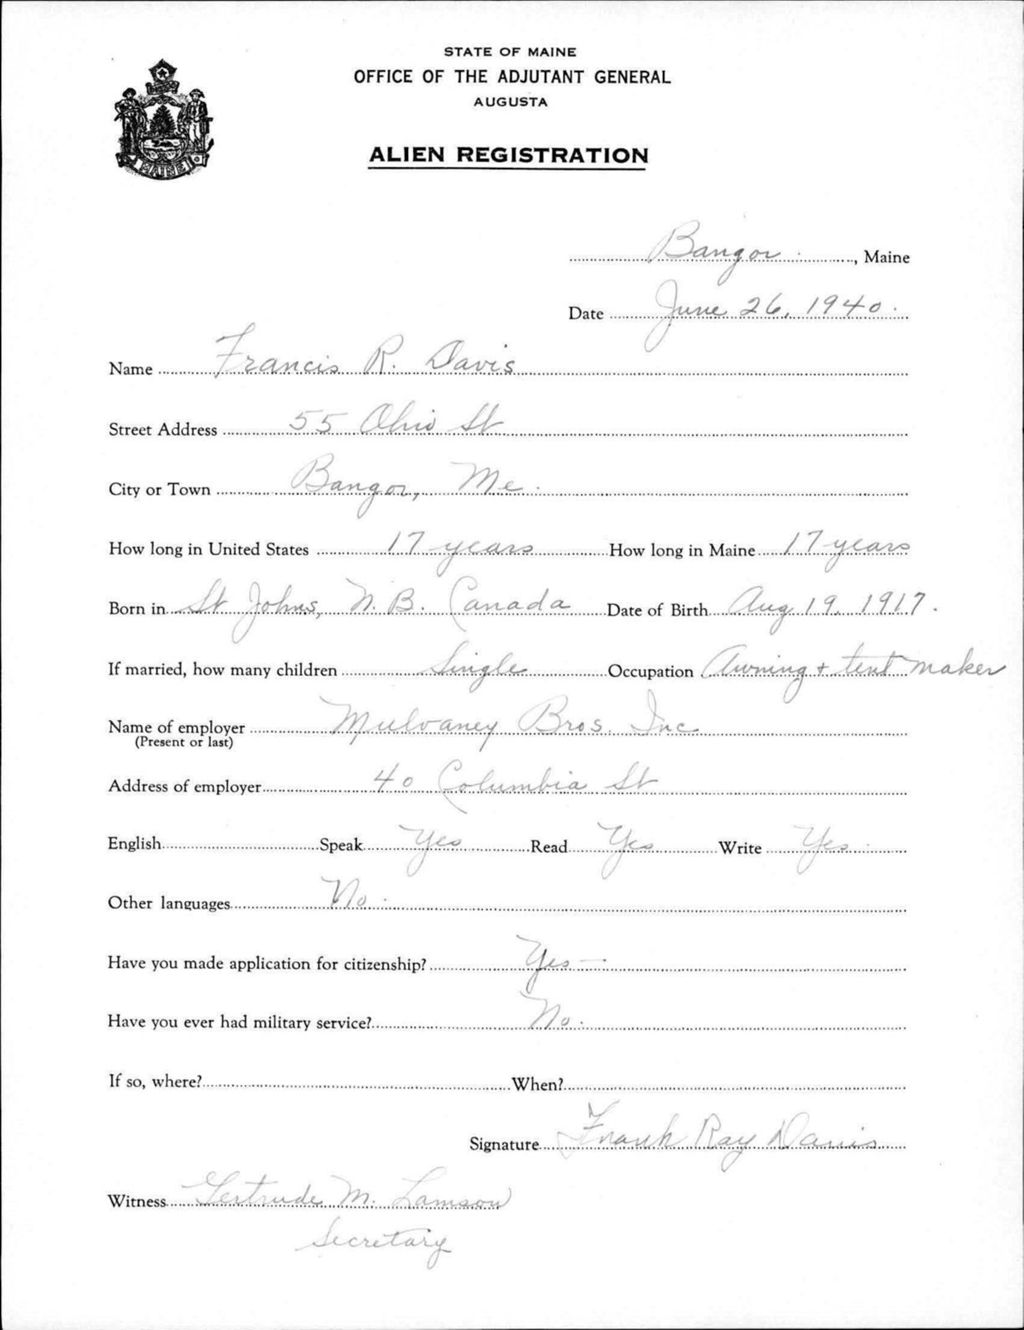 STATE OF MAINE
OFFICE OF THE ADJUTANT GENERAL
AUGUSTA
ALIEN REGISTRATION
MAINE
Bangor, Maine
Date June 26, 1940.
Name Francis R. Davis
Street Address 55 Ohio St
City or Town Bangor, Me.
How long in United States 17 years How long in Maine 17 years
Born in St Johns, N.B. Canada Date of Birth Aug 19 1917.
If married, how many children Single Occupation Awning + tent maker
Name of employer Mulvaney Bros. Inc
(Present or last)
Address of employer 40 Columbia St
English Speak Yes Read Yes Write Yes
Other languages No.
Have you made application for citizenship? Yes —
Have you ever had military service? No.
If so, where? When?
Signature Frank Ray Davis
Witness Gertrude M. Lamson
Secretary